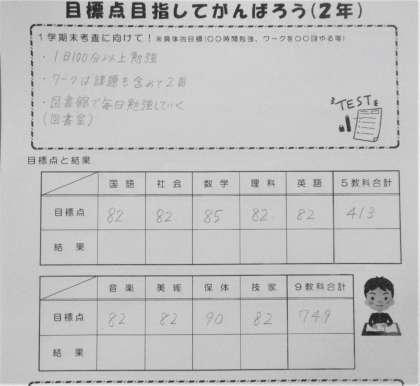 目標点目指してがんばろう(2年)
1学期末考査に向けて！※具体的目標(〇〇時間勉強、ワークを〇〇回やる等)
・1日100分以上勉強
・ワークは課題も含めて2回
・図書館で毎日勉強していく
(図書室)
TEST
目標点と結果
国語 社会 数学 理科 英語 5教科合計
目標点 82 82 85 82 82 413
結果
音楽 美術 保体 技家 9教科合計
目標点 82 82 90 82 749
結果